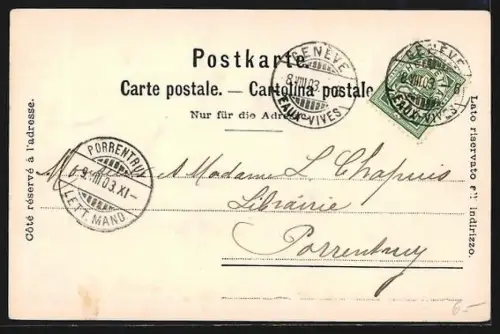 Postkarte.
Carte postale. — Cartolina postale
Nur für die Adresse
Côté réservé à l'adresse.
Lato riservato all' indirizzo.
GENÈVE
8.VIII.03
EAUX-VIVES
GENÈVE
8.VIII.03
EAUX-VIVES
PORRENTRUY
9.VIII.03.XI-
LETT. MAND
Monsieur et Madame L. Chapuis
Librairie
Porrentruy
6.-